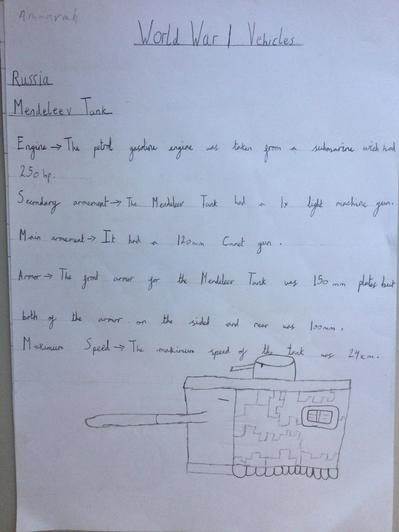 Ammarah
World War 1 Vehicles
Russia
Mendeleev Tank
Engine → The petrol gasoline engine was taken from a submarine wich had
250 hp.
Secondary armement → The Mendeleev Tank had a 1x light machine gun.
Main armement → It had a 120mm Canet gun.
Armor → The front armor for the Mendeleev Tank was 150 mm plates but
both of the armor on the sided and rear was 100mm.
Maximum Speed → The maximum speed of the tank was 24km.